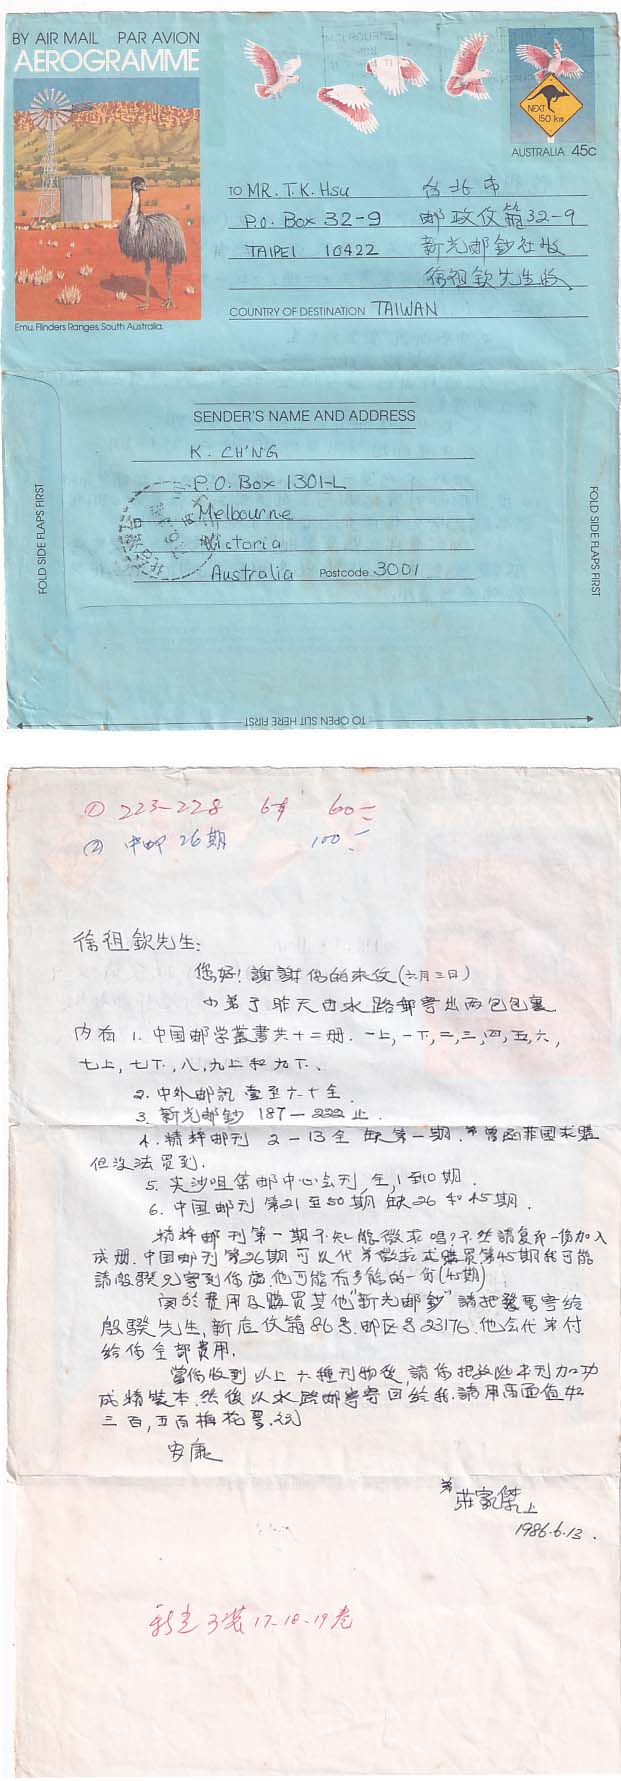 BY AIR MAIL PAR AVION
AEROGRAMME
NEXT
150 km
AUSTRALIA 45c
TO MR. T.K. Hsu 台北市
P.O. Box 32-9 邮政信箱32-9
TAIPEI 10422 新光邮鈔社
徐祖欽先生
COUNTRY OF DESTINATION TAIWAN
Emu, Flinders Ranges, South Australia.
SENDER'S NAME AND ADDRESS
K. CH'NG
P.O. Box 1301-L
Melbourne
Victoria
Australia Postcode 3001
FOLD SIDE FLAPS FIRST
FOLD SIDE FLAPS FIRST
TO OPEN SLIT HERE FIRST
① 223-228 6本 60
② 中邮 26期 100
徐祖欽先生:
您好!謝謝你的來信(六月三日)
小弟于昨天由水路邮寄出兩包包裹.
内有 1. 中国邮学叢書共十二册. 一上,一下,二,三,四,五,六,
七上,七下,八,九上和九下.
2. 中外邮訊 壹至六十全.
3. 新光邮鈔 187-222止.
4. 精粹邮刊 2-13全 缺第一期. 曾函菲國求購
但没法買到.
5. 尖沙咀集邮中心会刊,全,1到10期.
6. 中国邮刊 第21至50期 缺26和45期.
精粹邮刊第一期不知能徵求嗎?不然請复印一份加入
成册.中国邮刊第26期可以代弟徵求或購買.第45期我可能
請殷騤兄寄到你處.他可能有多餘的一份(45期)
関於費用及購買其他"新光邮鈔"請把發票寄給
殷騤先生,新店信箱86号.邮区号23176.他会代弟付
給你全部費用.
當你收到以上六種刊物後,請你把这些本刊加工
成精裝本.然後以水路邮寄回給我.請用高面值如
三百,五百梅花票.祝
安康
弟
莊家傑上
1986.6.13.
新光 3裝 17-18-19卷